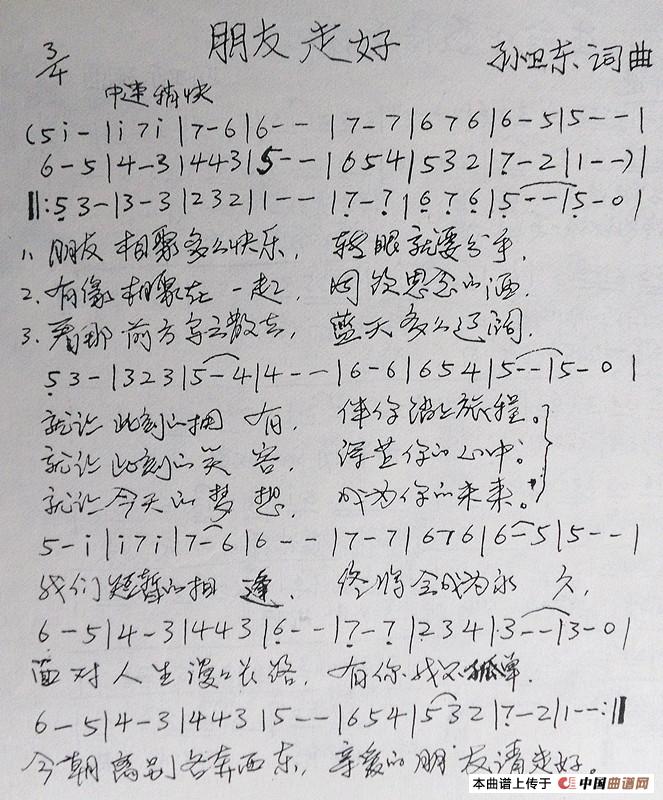 朋友走好
3/4
孙卫东 词曲
中速稍快
(5 i - | i 7 i | 7 - 6 | 6 - - | 7 - 7 | 6 7 6 | 6 - 5 | 5 - - |
6 - 5 | 4 - 3 | 4 4 3 | 5 - - | 6 5 4 | 5 3 2 | 7̣ - 2 | 1 - -) |
‖: 5̣ 3 - | 3 - 3 | 2 3 2 | 1 - - | 7̣ - 7̣ | 6̣ 7̣ 6̣ | 5̣ - - | 5̣ - 0 |
1、朋友相聚多么快乐, 转眼就要分手,
2、有缘相聚在一起, 同饮思念的酒,
3、看那前方 云散去, 蓝天多么辽阔,
5̣ 3 - | 3 2 3 | 5 - 4 | 4 - - | 6 - 6 | 6 5 4 | 5 - - | 5 - 0 |
就让此刻的拥有, 伴你踏上旅程。
就让此刻的笑容, 深芷你的心中。
就让今天的梦想, 成为你的未来。
5 - i | i 7 i | 7 - 6 | 6 - - | 7 - 7 | 6 7 6 | 6 - 5 | 5 - - |
我们短暂的相逢, 终将会成为永久,
6 - 5 | 4 - 3 | 4 4 3 | 6̣ - - | 7̣ - 7̣ | 2 3 4 | 3 - - | 3 - 0 |
面对人生漫漫长路, 有你我不孤单.
6 - 5 | 4 - 3 | 4 4 3 | 5 - - | 6 5 4 | 5 3 2 | 7̣ - 2 | 1 - - :‖
今朝离别各奔西东, 亲爱的朋友请走好。
本曲谱上传于 中国曲谱网